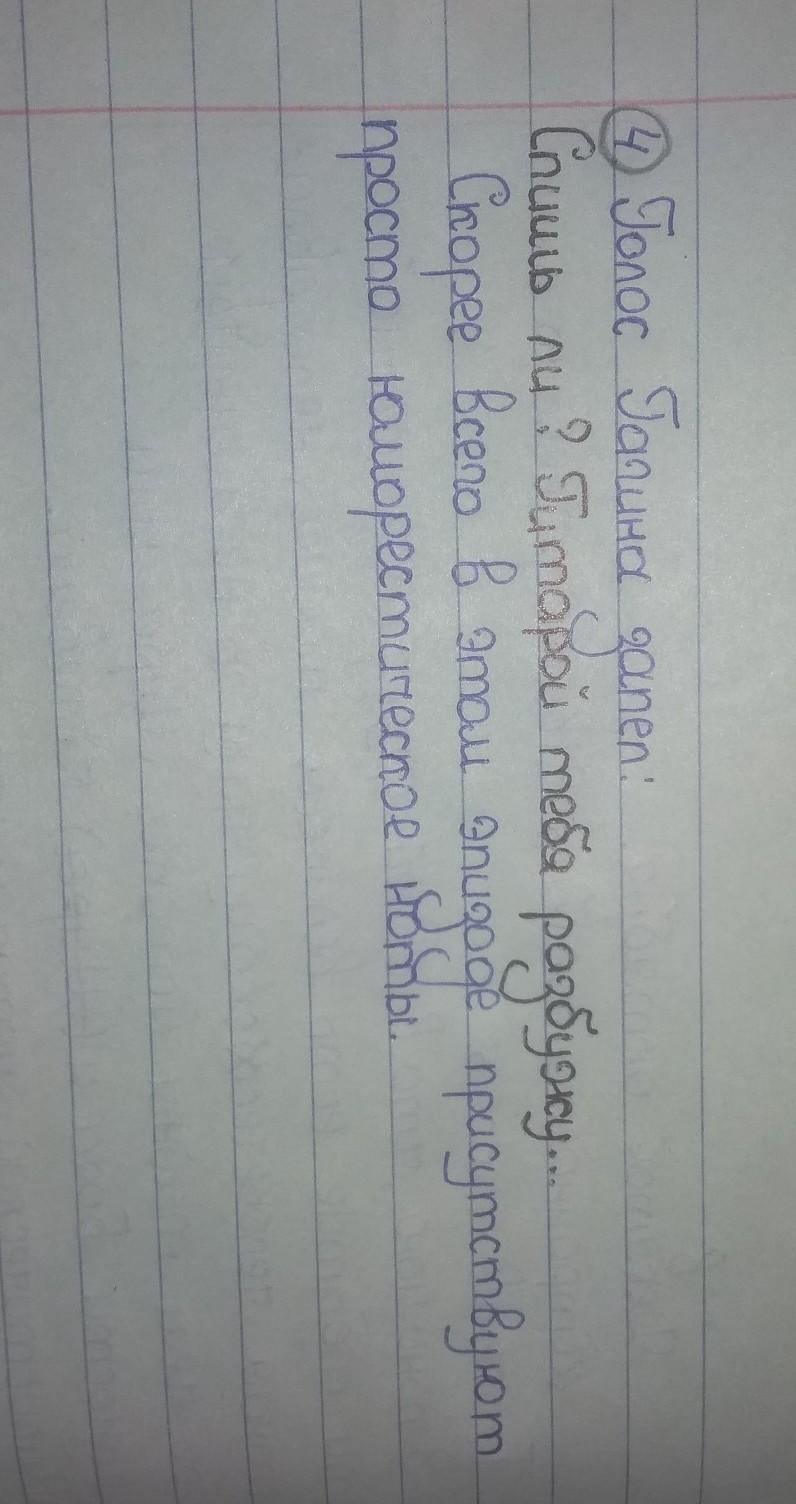 4 Голос Гагина запел:
Спишь ли? Гитарой тебя разбужу...
Скорее всего в этом эпизоде присутствуют
просто юморестическое ноты.